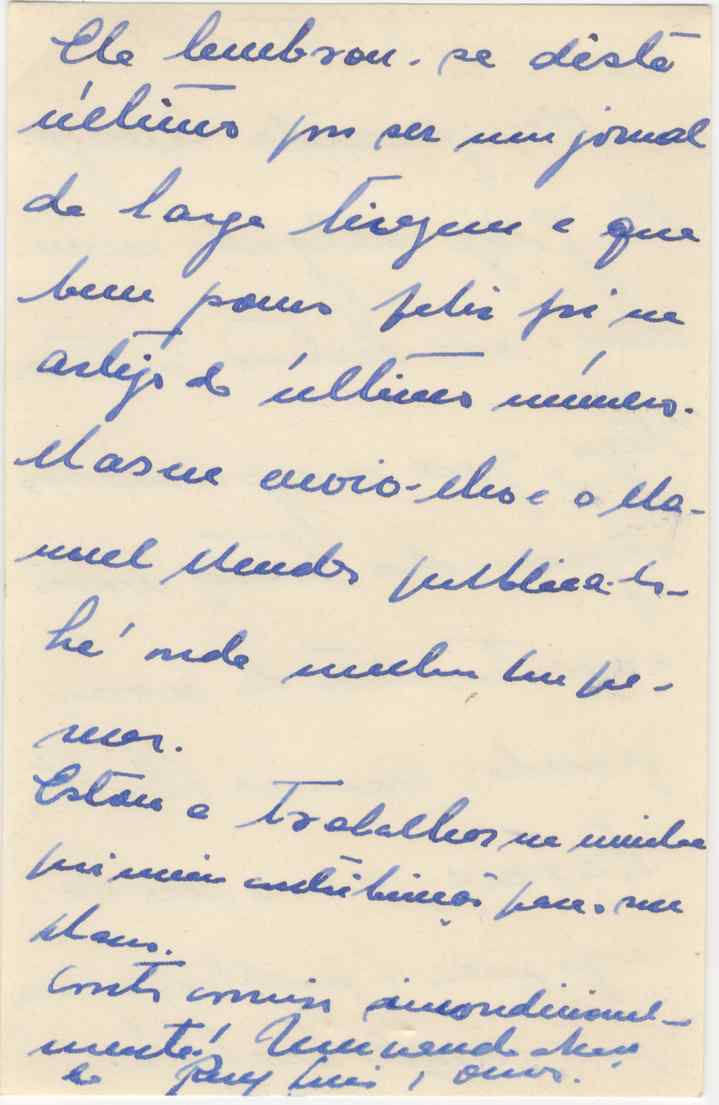 Ele lembrou-se dêste
último por ser um jornal
de larga tiragem e que
bem pouco feliz foi no
artigo do último número.
Mas eu envio-lhos e o Ma-
nuel Mendes publica-lo-
há onde melhor lhe pa-
recer.
Estou a trabalhar na minha
primeira contribuição para
Conte comigo incondicional-
mente! Um grande abraço
do Ruy Luís